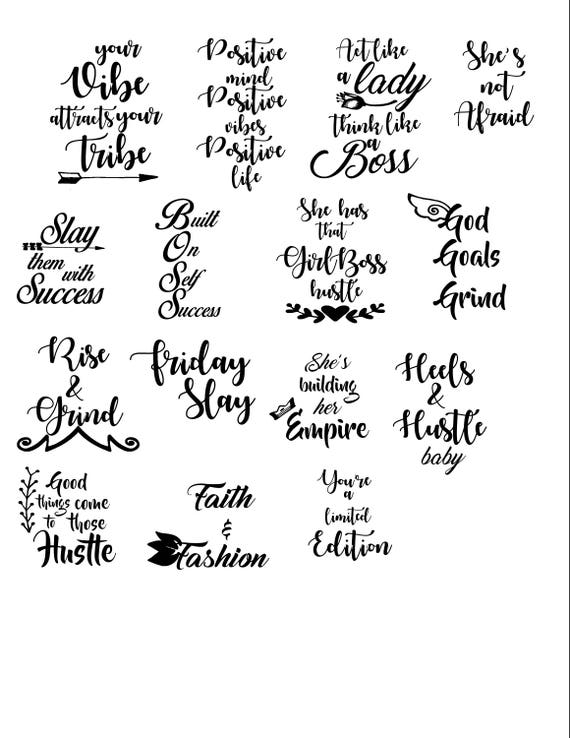 your
Vibe
attracts your
tribe
Positive
mind
Positive
vibes
Positive
life
Act like
a lady
think like
a
Boss
She's
not
Afraid
Slay
them
with
Success
Built
On
Self
Success
She has
that
GirlBoss
hustle
God
Goals
Grind
Rise
&
Grind
friday
Slay
She's
building
her
Empire
Heels
&
Hustle
baby
Good
things come
to those
Hustle
Faith
&
Fashion
You're
a
limited
Edition